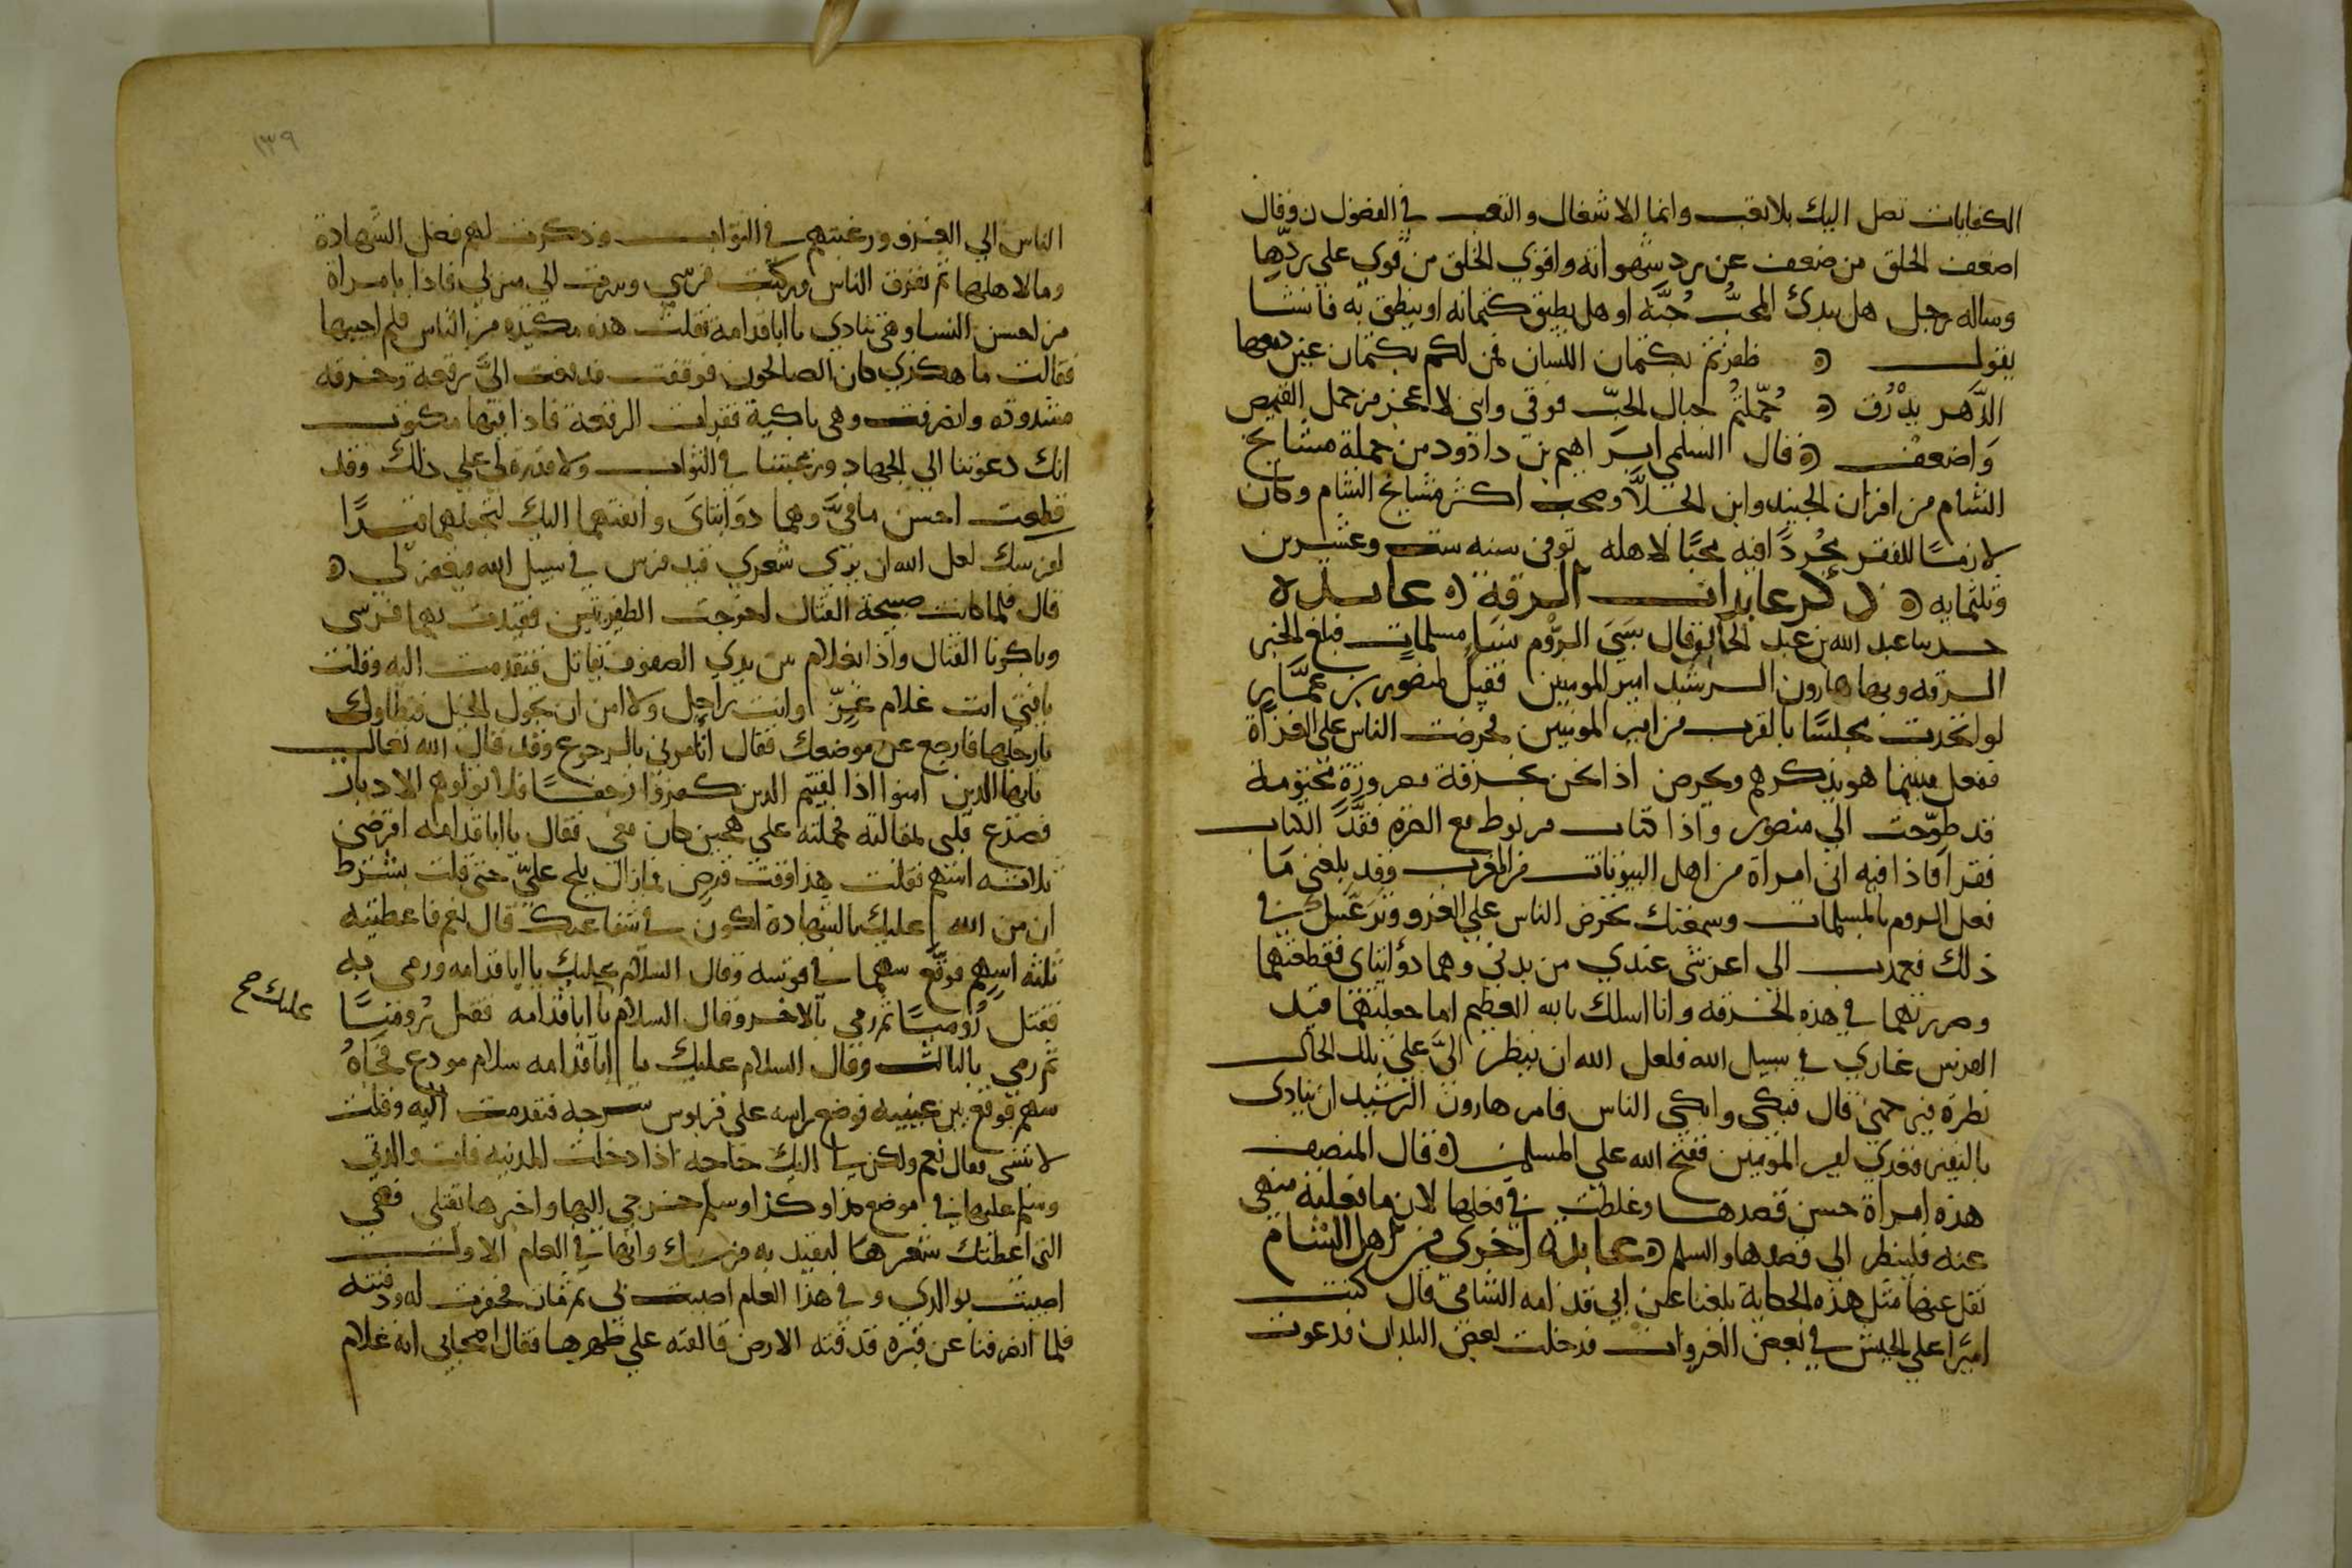 الكفايات تصل اليك بلا تعب وانما الاشتغال والتعب في الفضول ن وقال
اضعف الخلق من ضعف عن رد شهواته واقوي الخلق من قوي علي ردها
وساله رجل هل يبدي المحب حبه او هل يطيق كتمانه او ينطق به فانشا
يقول ظفرتم بكتمان اللسان فمن لكم بكتمان عين دمعها
الدهر يذرف حملتم جبال الحب فوقي وانني لاعجز من حمل القميص
واضعف قال السلمي ابراهيم بن داوود من جملة مشايخ
الشام من اقران الجنيد وابن الجلا وصحب اكثر مشايخ الشام وكان
لازما للفقر مجردا فيه محبا لاهله توفي سنه ست وعشرين
وثلثمايه ذكر عابدات الرقة عابدة
حدثنا عبد الله بن عبد الخالق قال سبي الروم نساء مسلمات فبلغ الخبر
الرقه وبها هارون الرشيد امير المومنين فقيل لمنصور بن عمار
لو اتخذت مجلسا بالقرب من امير المومنين فحرضت الناس علي الغزاة
ففعل فبينما هو يذكرهم ويحرض اذا نحن بخرقة مصرورة مختومة
قد طوحت الي منصور واذا كتاب مربوط مع الصرة ففك الكتاب
فقرا فاذا فيه اني امراة من اهل البيوتات من العرب وقد بلغني ما
فعل الروم بالمسلمات وسمعتك تحرض الناس علي الغزو وترغبك في
ذلك فعمدت الي اعز شي عندي من بدني وهما ذؤابتاي فقطعتهما
وصررتهما في هذه الخرقه وانا اسلك بالله العظيم اما جعلتهما قيد
الفرس غازي في سبيل الله فلعل الله ان ينظر الي علي تلك الحال
نظرة فيرحمني قال فبكي وابكي الناس فامر هارون الرشيد ان ينادى
بالنفير فغزي امير المومنين ففتح الله علي المسلمين قال المصنف
هذه امراة حسن قصدها وغلطت في فعلها لان ما فعلته منهي
عنه فلينظر الي قصدها والسلم عابدة اخري من اهل الشام
نقل عنها مثل هذه الحكاية بلغنا عن ابي قدامه الشامي قال كنت
اميرا علي الجيش في بعض الغزوات فدخلت بعض البلدان فدعوت
١٣٩
الناس الي الغزو ورغبتهم في الثواب وذكرت لهم فضل الشهادة
وما لاهلها ثم تفرق الناس وركبت فرسي وسرت الي منزلي فاذا بامراة
من احسن النسا وهي تنادي يا ابا قدامة فقلت هذه مكيدة من الناس فلم اجبها
فقالت ما هكذي كان الصالحون فوقفت فدفعت الي رقعة وخرقه
مشدوده وانصرفت وهي باكية فقرات الرقعة فاذا فيها مكتوب
انك دعوتنا الي الجهاد ورغبتنا في الثواب ولا قدرة لي علي ذلك وقد
قطعت احسن ما في وهما ذوابتاي وانفذتهما اليك لتجعلهما قيدا
لفرسك لعل الله ان يري شعري قيد فرس في سبيل الله فيغفر لي
قال فلما كانت صبيحة القتال اخرجت الظفيرتين فقيدت بهما فرسي
وباكرنا القتال واذا بغلام بين يدي الصفوف يقاتل فتقدمت اليه وقلت
يا فتي انت غلام غر وانت راجل ولا امن ان تجول الخيل فتطاوك
بارجلها فارجع عن موضعك فقال اتامرني بالرجوع وقد قال الله تعالي
يايها الذين امنوا اذا لقيتم الذين كفروا زحفا فلا تولوهم الادبار
فصدع قلبي لمقالته فحملته علي هجين كان معي فقال يا ابا قدامه اقرضني
ثلاثه اسهم فقلت هذا وقت قرض فما زال يلح علي حتي قلت بشرط
ان من الله عليك بالشهادة اكون في شفاعتك قال نعم فاعطيته
ثلثه اسهم فوقع سهما في قوسه وقال السلام عليك يا ابا قدامه ورمي به
فقتل روميا ثم رمي بالاخر وقال السلام يا ابا قدامه فقتل روميا
عليك صح
ثم رمي بالثالث وقال السلام عليك يا ابا قدامه سلام مودع فجاه
سهم فوقع بين عينيه فوضع راسه علي قربوس سرجه فتقدمت اليه وقلت
لا تنسي فقال نعم ولكن لي اليك حاجه اذا دخلت المدينه فات والدتي
وسلم عليها في موضع كذا وكذا وسلم خرجي اليها واخبرها بقتلي فهي
التي اعطتك شعرها ليقيد به فرسك وانها في العام الاول
اصيبت بوالدي وفي هذا العام اصيبت بي ثم مات فحفرت له ودفنته
فلما انصرفنا عن قبره قذفته الارض فالقته علي ظهرها فقال اصحابي انه غلام